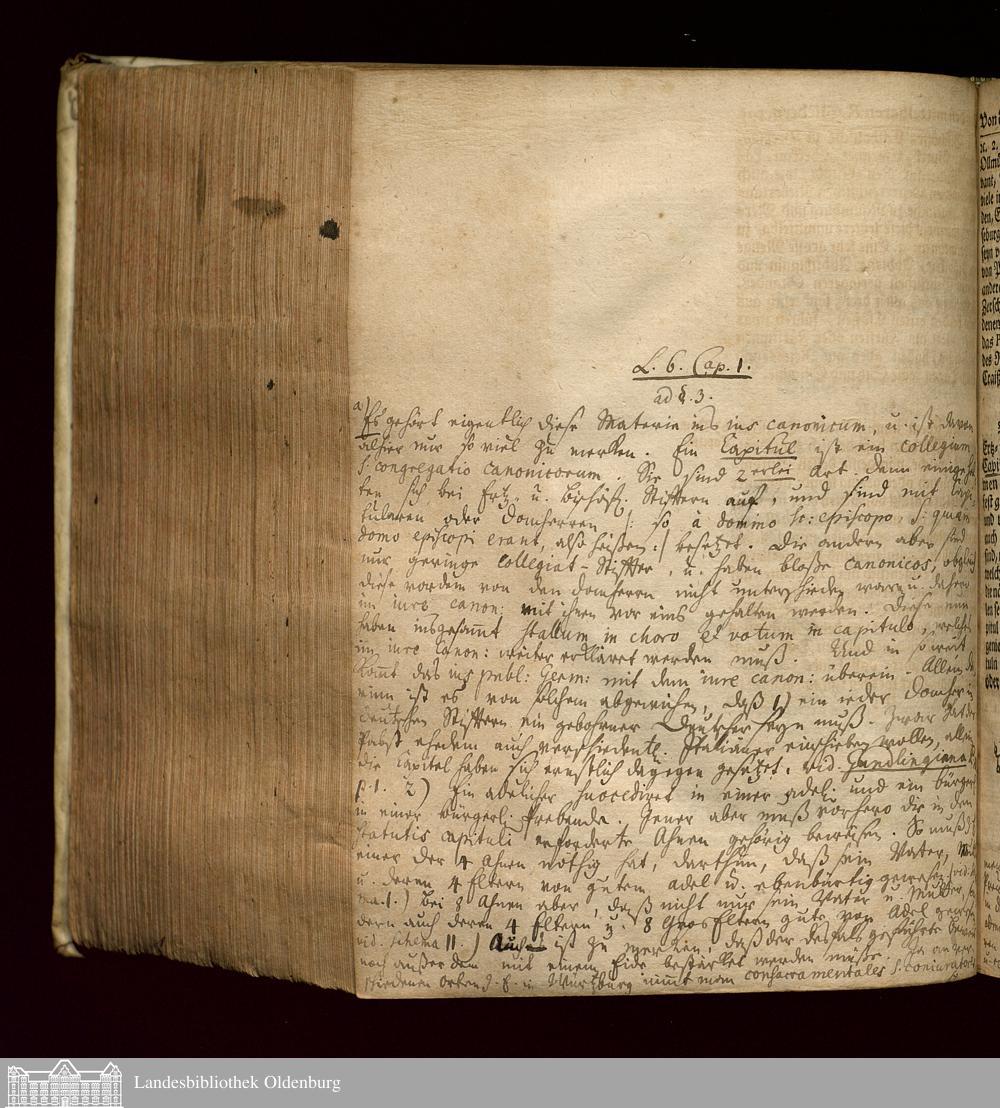 L. 6. Cap. 1.
ad §. 3.
a) Es gehört eigentlich diese Materie ins ius canonicum, u. ist davon
alhier nur so viel zu merken. Ein Capitul ist ein collegium
s. congregatio canonicorum. Sie sind 2erlei Art. Denn einige
ten sich bei Ertz- u. Bischöfl. Stifftern auf, und sind mit Capi-
tularen oder Domherren /: so à domino sc: episcopo, s: quia in
domo episcopi erant, also heißen :/ besetzet. Die andern aber sind
nur geringe Collegiat-Stiffter, u. haben bloße canonicos, obgleich
diese vordem von den Domherren nicht unterschieden waren u. daher
im iure canon: mit ihnen vor eins gehalten werden. Diese nun
haben insgesamt stallum in choro et votum in capitulo, welches
im iure Canon: weiter erkläret werden muß. Und in so weit
kömt das ius publ: Germ: mit dem iure canon: überein. Allein
rinn ist es von solchem abgewichen, daß 1) ein ieder Domherr in
deutschen Stifftern ein gebohrner Deutscher seyn muß. Zwar hat der
Pabst ehedem auch verschiedentl. Italiäner einschieben wollen, allein
die Capitel haben sich ernstlich dagegen gesetzet. vid. Gundlingiana
p. 1. 2) Ein adelicher succediret in einer adel. und ein bürger
in einer bürgerl. Præbende. Jener aber muß vorhero die in den
statutis capituli erforderte Ahnen gehörig beweisen. So muß z. E.
einer der 4 Ahnen nöthig hat, darthun, daß sein Vater, Mutter
u. deren 4 Eltern von gutem Adel u. ebenbürtig gewesen (vid.
ma. 1.) bei 8 Ahnen aber, daß nicht nur sein Vater u. Mutter, son
dern auch deren 4 Eltern u. 8 GrosEltern guts von Adel gewesen
vid. schema II.) Auch ist zu mercken, daß der desfals geführte Beweis
noch außer dem mit einem Eide bestärket werden müße. Ja an ver-
schiedenen Orten z. E. in Würtzburg nimt man consacramentales s. coniuratores
Landesbibliothek Oldenburg